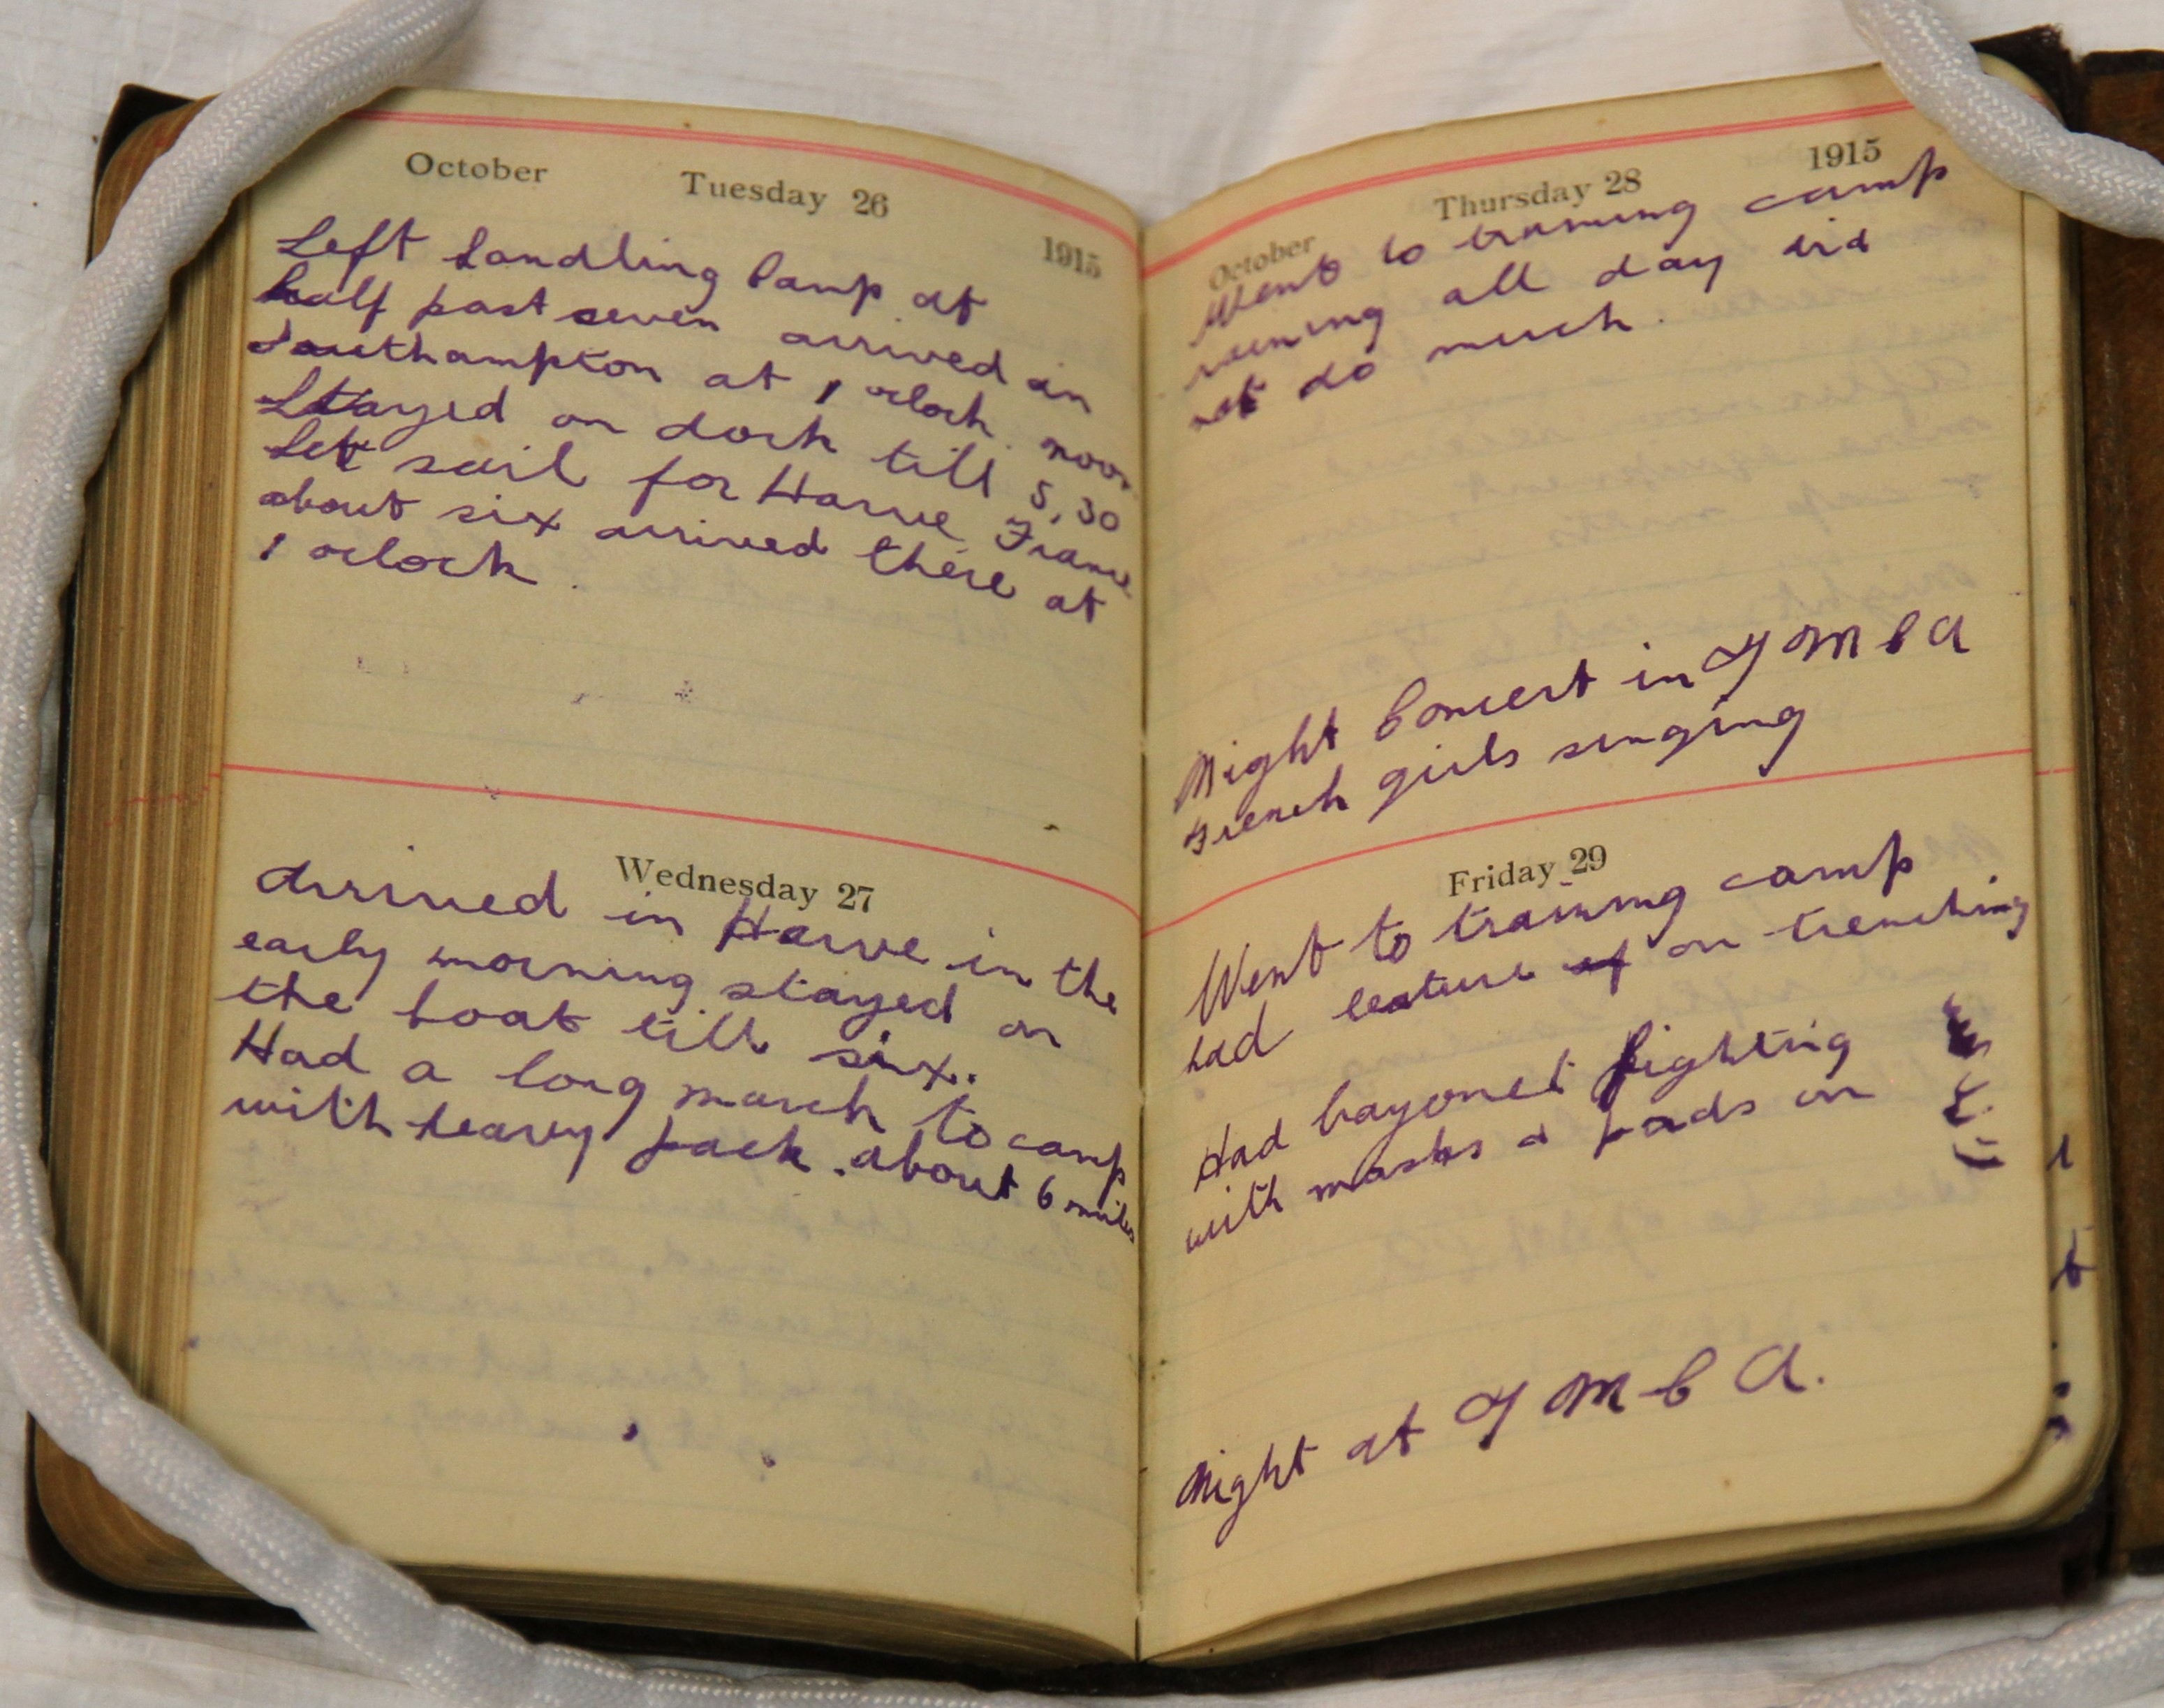 October Tuesday 26 1915
Left Sandling Camp at
half past seven arrived in
Southampton at 1 oclock noon
Stayed on dock till 5,30
Set sail for Harve France
about six arrived there at
1 oclock.
Wednesday 27
Arrived in Harve in the
early morning stayed on
the boat till six.
Had a long march to camp
with heavy pack. about 6 miles
October Thursday 28 1915
Went to training camp
raining all day did
not do much.
Night Concert in Y M C A
French girls singing
Friday 29
Went to training camp
had leature of on trenching
Had bayonet fighting
with masks & pads on
Night at Y M C A.